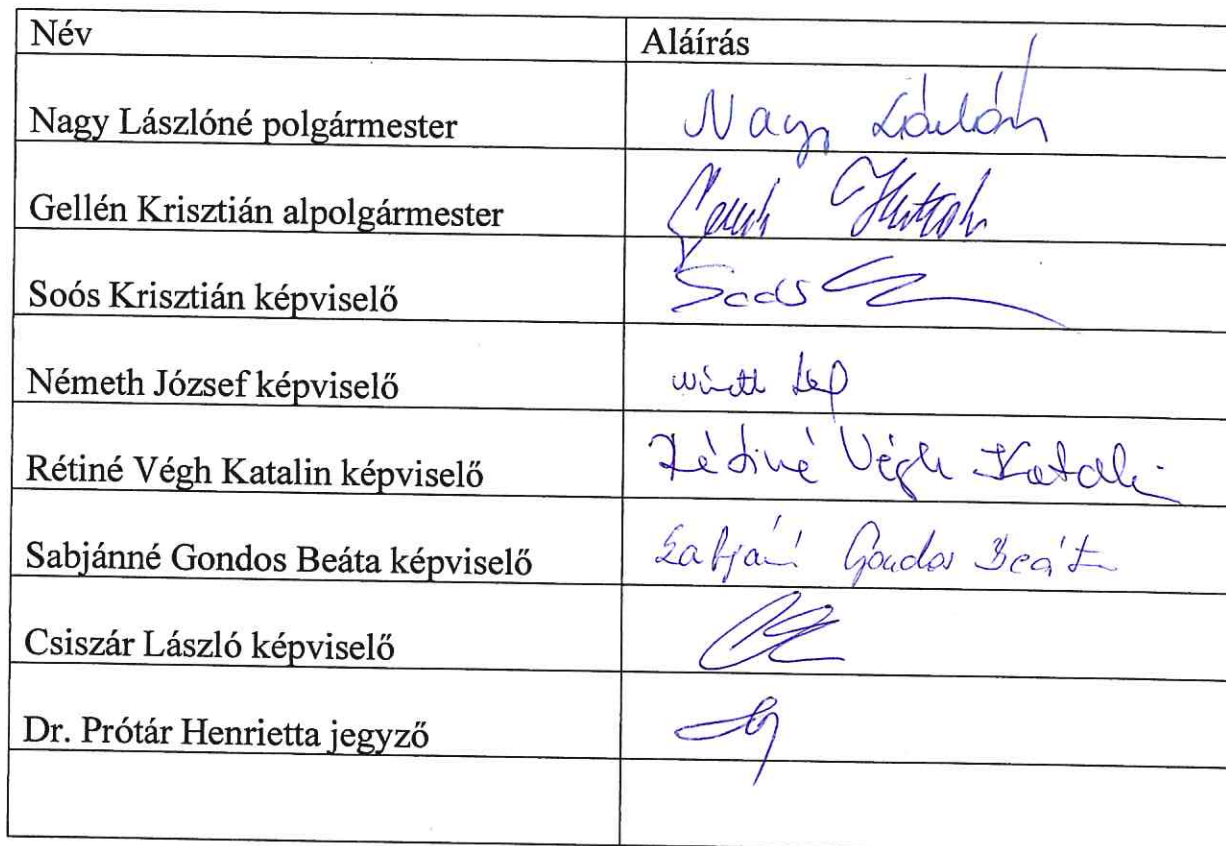 Név Aláírás
Nagy Lászlóné polgármester Nagy
Gellén Krisztián alpolgármester
Soós Krisztián képviselő Soós
Németh József képviselő
Rétiné Végh Katalin képviselő Rétiné Végh Katalin
Sabjánné Gondos Beáta képviselő Gondos Beáta
Csiszár László képviselő
Dr. Prótár Henrietta jegyző